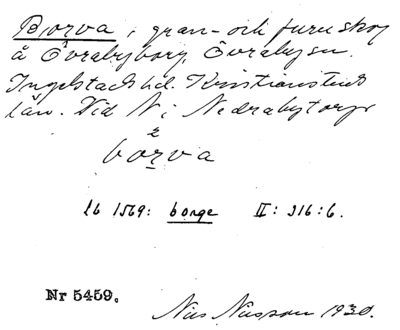 Borva, gran- och furuskog
å Övrabyborg, Övraby sn.
Ingelstads hd. Kristianstads
län. Vid N i Nedrabytorps
borva
lb 1569: borge II: 316:6.
Nr 5459.
Nils Nilsson 1930.